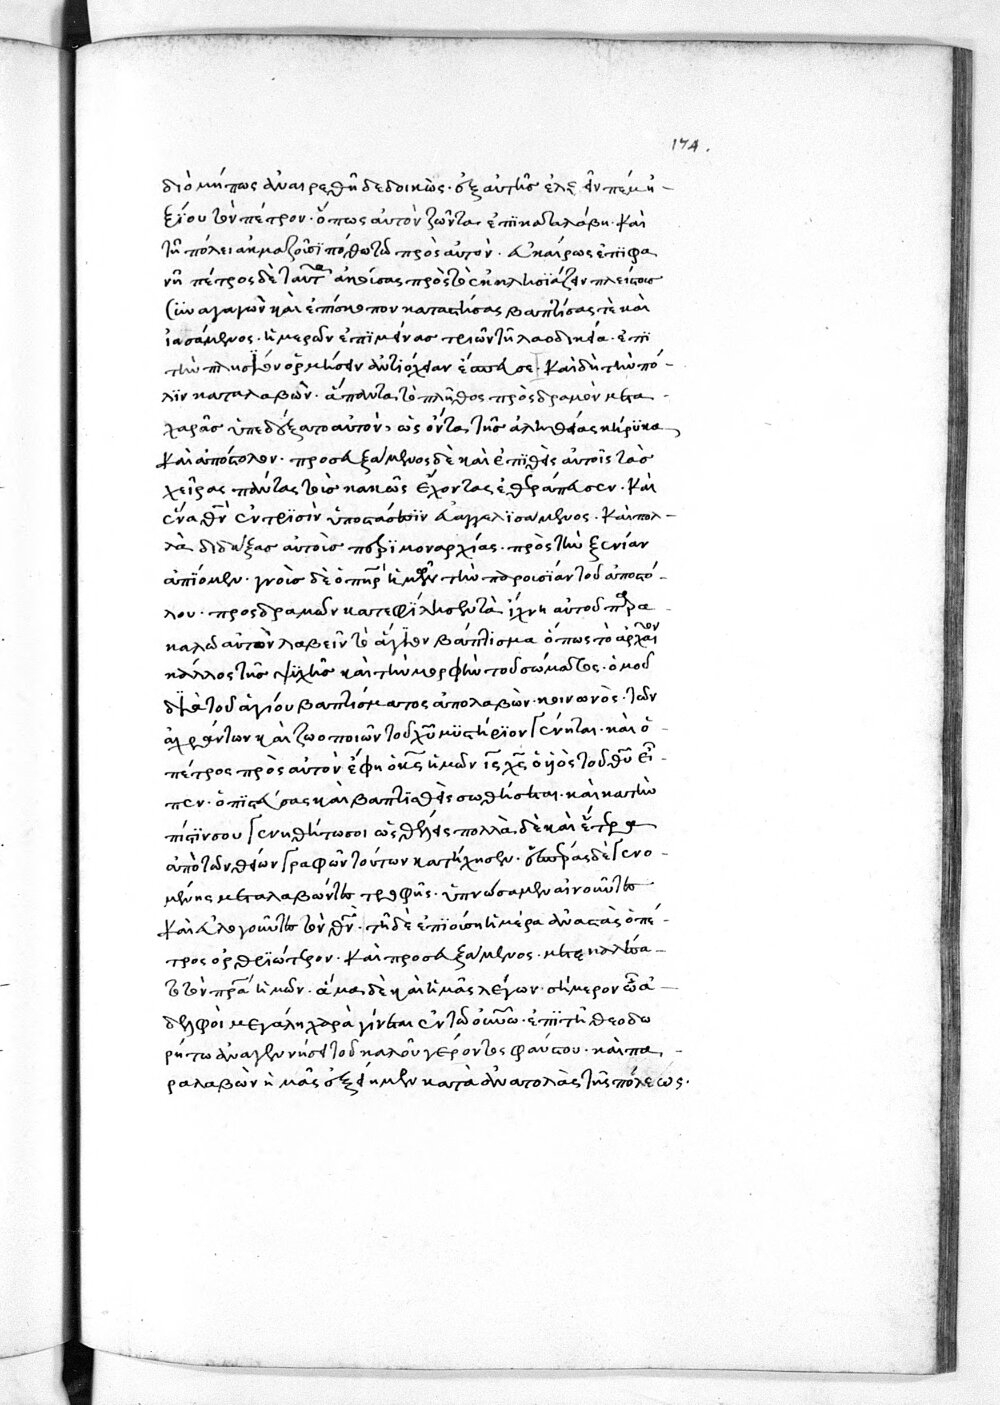 174.
διὸ μήπως ἀναιρεθῆ δεδοικὼς· ἐξ αὐτῆς ἐλεεῖν
ξίου τὸν πέτρον· ὅπως αὐτὸν ζῶντα ἐπικαταλάβη· καὶ
τῆ πόλει πρὸς αὐτόν· εὐκαίρως ἐπιφα
νῆ πέτρος δὲ ταῦτα πρὸς τὸ ἐκκλησιάζειν πλείστοις
συναγαγὼν καὶ ἐπίσκοπον καταστήσας βαπτίσας τὲ καὶ
ἰασάμενος· ἡμερῶν ἐπιμείνας τριῶν τῆ λαοδικεία· ἐπὶ
τὴν πλησίον ὁρμῆσαι ἀντιόχειαν ἔσπευσε· καὶ δὴ τὴν πό-
λιν καταλαβὼν· ἅπαντα τὸ πλῆθος προσδραμὸν μετα
χαρᾶς ὑπεδέξατο αὐτὸν, ὡς ὄντα τῆς ἀληθείας κήρυκα
καὶ ἀπόστολον· προσευξάμενος δὲ καὶ ἐπιθεὶς αὐτοῖς τὰς
χεῖρας πάντας τοὺς κακῶς ἔχοντας ἐθεράπευσεν· καὶ
ἕνα θν ἐν τρισὶν ὑποστάσεσιν εὐαγγελισάμενος· καὶ πολ-
λὰ διδάξας αὐτοὺς περὶ μοναρχίας· πρὸς τὴν ξενίαν
ἀπίομεν· γνοὺς δὲ ὁ πηρ ἡμῶν τὴν παρουσίαν τοῦ ἀποστό-
λου· προσδραμὼν κατεφίλησεν τὰ ἴχνη αὐτοῦ παρα
καλῶν αὐτὸν λαβεῖν τὸ ἅγιον βάπτισμα ὅπως τὸ ἀρχαῖον
κάλλος τῆς ψυχῆς καὶ τὴν μορφὴν τοῦ σώματος· ὁμοῦ
διὰ τοῦ ἁγίου βαπτίσματος ἀπολαβὼν· κοινωνὸς· τῶν
ἀχράντων καὶ ζωοποιῶν τοῦ χυ μυστήριον γένηται· καὶ ὁ
πέτρος πρὸς αὐτὸν ἔφη ὁ κς ἡμῶν ις χς ὁ υἱὸς τοῦ θυ εἶ-
πεν· ὁ πιστεύσας καὶ βαπτισθεὶς σωθήσεται· καὶ κατὰ τὴν
πίστιν σου γενηθήτω σοι ὡς θέλεις πολλὰ δὲ καὶ ἕτερα
ἀπὸ τῶν θείων γραφῶν τούτων κατήχησεν· ἑσπέρας δὲ γενο-
μένης μεταλαβόντες τροφῆς· ὑπνώσαμεν αἰνοῦντες
καὶ εὐλογοῦντες τὸν θν· τῆ δὲ ἐπιούση ἡμέρα ἀναστὰς ὁ πέ-
τρος ὀρθριώτερον· καὶ προσευξάμενος· μετεκαλέσα-
το τὸν πρα ἡμῶν· ἅμα δὲ καὶ ἡμᾶς λέγων· σήμερον ὦ ἀ
δελφοὶ μεγάλη χαρὰ γίνεται ἐν τῶ οὐνω· ἐπὶ τῆ θεοδω
ρήτω ἀναγεννήσει τοῦ καλοῦ γέροντος φαύστου· καὶ πα
ραλαβὼν ἡμᾶς ἐξήειμεν κατὰ ἀνατολὰς τῆς πόλεως.